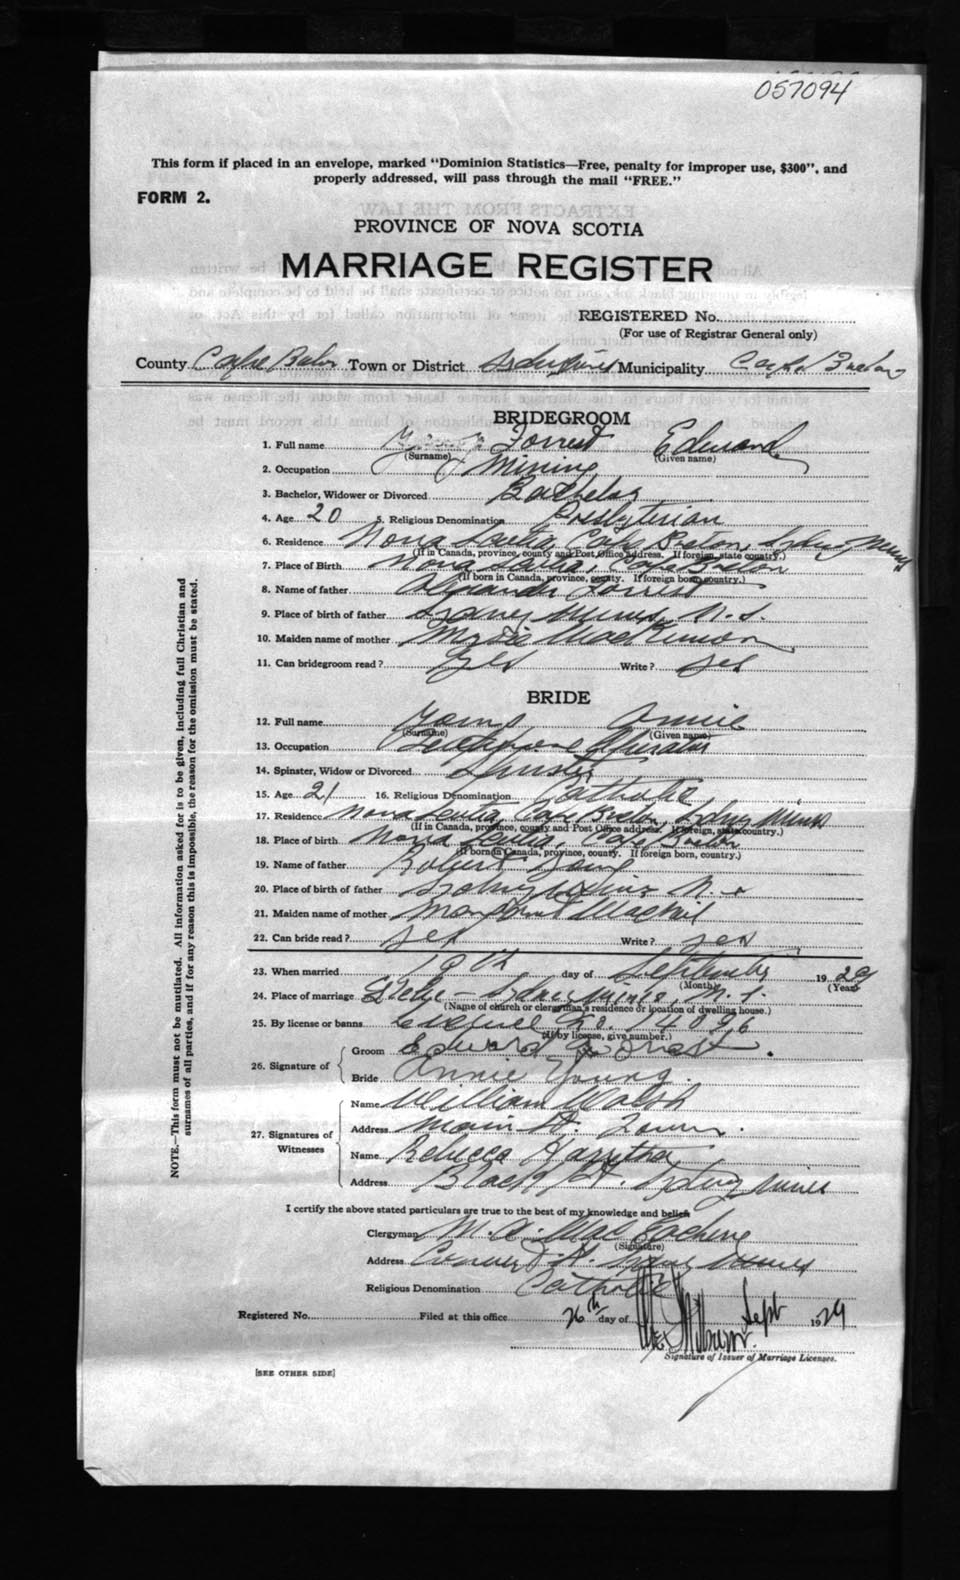 057094
This form if placed in an envelope, marked "Dominion Statistics—Free, penalty for improper use, $300", and
properly addressed, will pass through the mail "FREE."
FORM 2.
PROVINCE OF NOVA SCOTIA
MARRIAGE REGISTER
REGISTERED No.
(For use of Registrar General only)
County Cape Breton Town or District Sydney Mines Municipality Cape Breton
BRIDEGROOM
1. Full name Forrest Edward
(Surname) (Given name)
2. Occupation Mining
3. Bachelor, Widower or Divorced Bachelor
4. Age 20 5. Religious Denomination Presbyterian
6. Residence Nova Scotia, Cape Breton, Sydney Mines
(If in Canada, province, county and Post Office address. If foreign, state country.)
7. Place of Birth Nova Scotia, Cape Breton
(If born in Canada, province, county. If foreign born, country.)
8. Name of father Alexander Forrest
9. Place of birth of father Sydney Mines N. S.
10. Maiden name of mother MacKinnon
11. Can bridegroom read? Yes Write? yes
BRIDE
12. Full name Young Annie
(Surname) (Given name)
13. Occupation Telephone Operator
14. Spinster, Widow or Divorced Spinster
15. Age 21 16. Religious Denomination Catholic
17. Residence Nova Scotia, Cape Breton, Sydney Mines
(If in Canada, province, county and Post Office address. If foreign, state country.)
18. Place of birth Nova Scotia, Cape Breton
(If born in Canada, province, county. If foreign born, country.)
19. Name of father Robert Young
20. Place of birth of father Sydney Mines N. S.
21. Maiden name of mother Margaret MacNeil
22. Can bride read? yes Write? yes
23. When married 19th day of September 1929
(Month) (Year)
24. Place of marriage Glebe - Sydney Mines, N. S.
(Name of church or clergyman's residence or location of dwelling house.)
25. By license or banns License No. 14096
(If by license, give number.)
26. Signature of
Groom Edward Forrest.
Bride Annie Young.
27. Signatures of
Witnesses
Name William Walsh
Address Main St. Town.
Name Rebecca
Address St. Sydney Mines
I certify the above stated particulars are true to the best of my knowledge and belief.
Clergyman M. A. MacEachern
(Signature)
Address Convent St. Sydney Mines
Religious Denomination Catholic
Registered No. Filed at this office 26th day of Sept 1929
Signature of Issuer of Marriage Licenses.
[SEE OTHER SIDE]
NOTE.—This form must not be mutilated. All information asked for is to be given, including full Christian and
surnames of all parties, and if for any reason this is impossible, the reason for the omission must be stated.